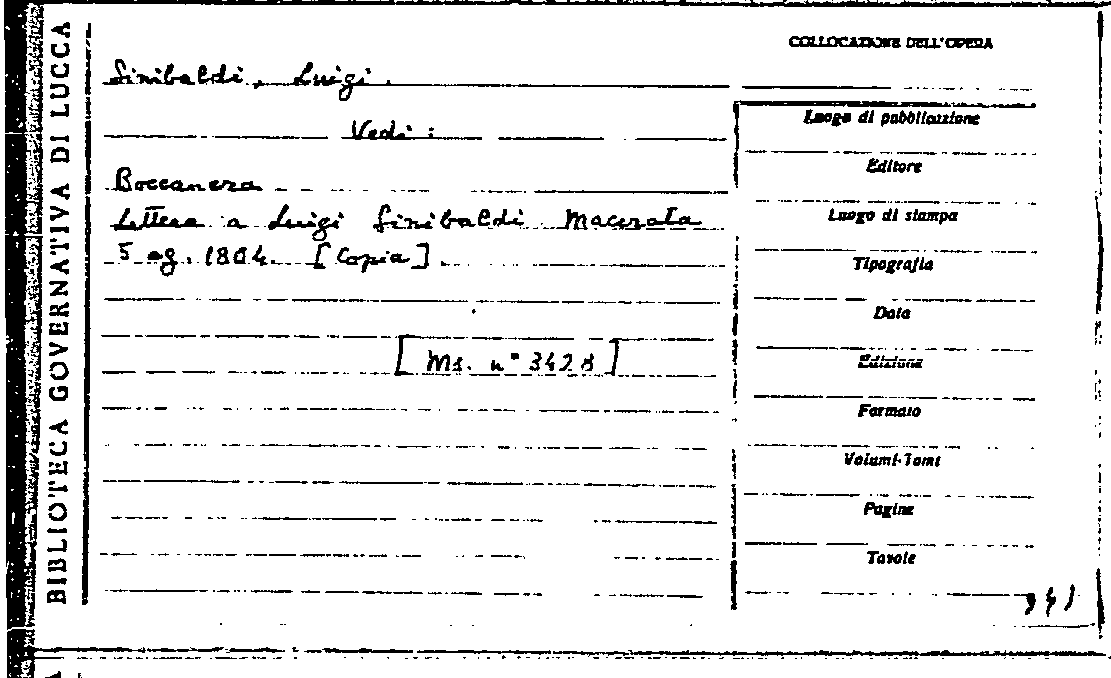 BIBLIOTECA GOVERNATIVA DI LUCCA
COLLOCAZIONE DELL'OPERA
Sinibaldi, Luigi.
Vedi:
Boccanera
Lettera a Luigi Sinibaldi Macerata
5 ag. 1804. [Copia].
[Ms. n° 3428]
Luogo di pubblicazione
Editore
Luogo di stampa
Tipografia
Data
Edizione
Formato
Volumi-Tomi
Pagine
Tavole